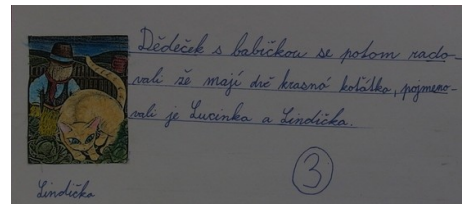 Dědeček s babičkou se potom rado-
vali že mají dvě krasná koťátka, pojmeno-
vali je Lucinka a Lindička.
3
Lindička